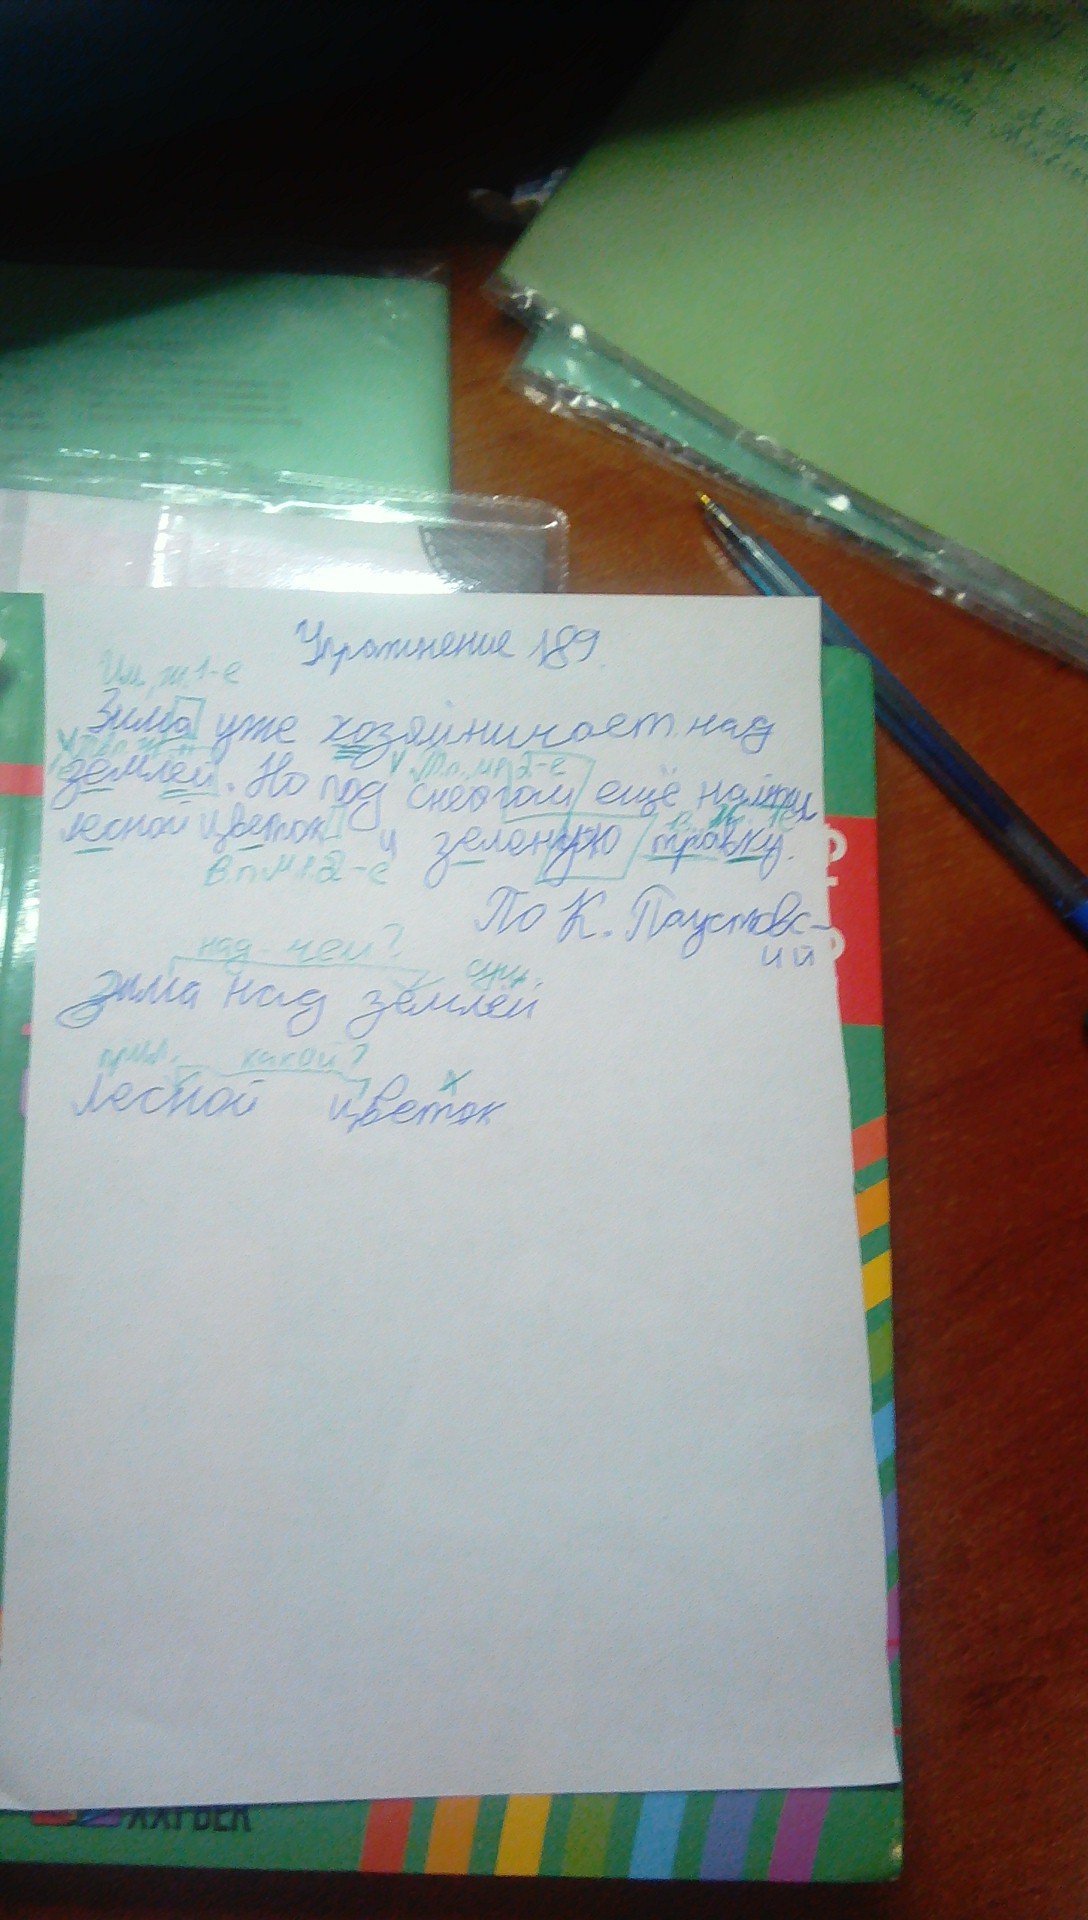 Упражнение 189.
Им, ж, 1-е
Зима уже хозяйничает над
Т.п. ж.
Т.п., м, 2-е
землей. Но под снегом ещё найдёшь
В.
лесной цветок и зеленую травку.
В.п. м. 2-е
По К. Паустовс-
ий
над чем?
сущ.
зима над землей
прил. какой?
х
лесной цветок
XXI ВЕК